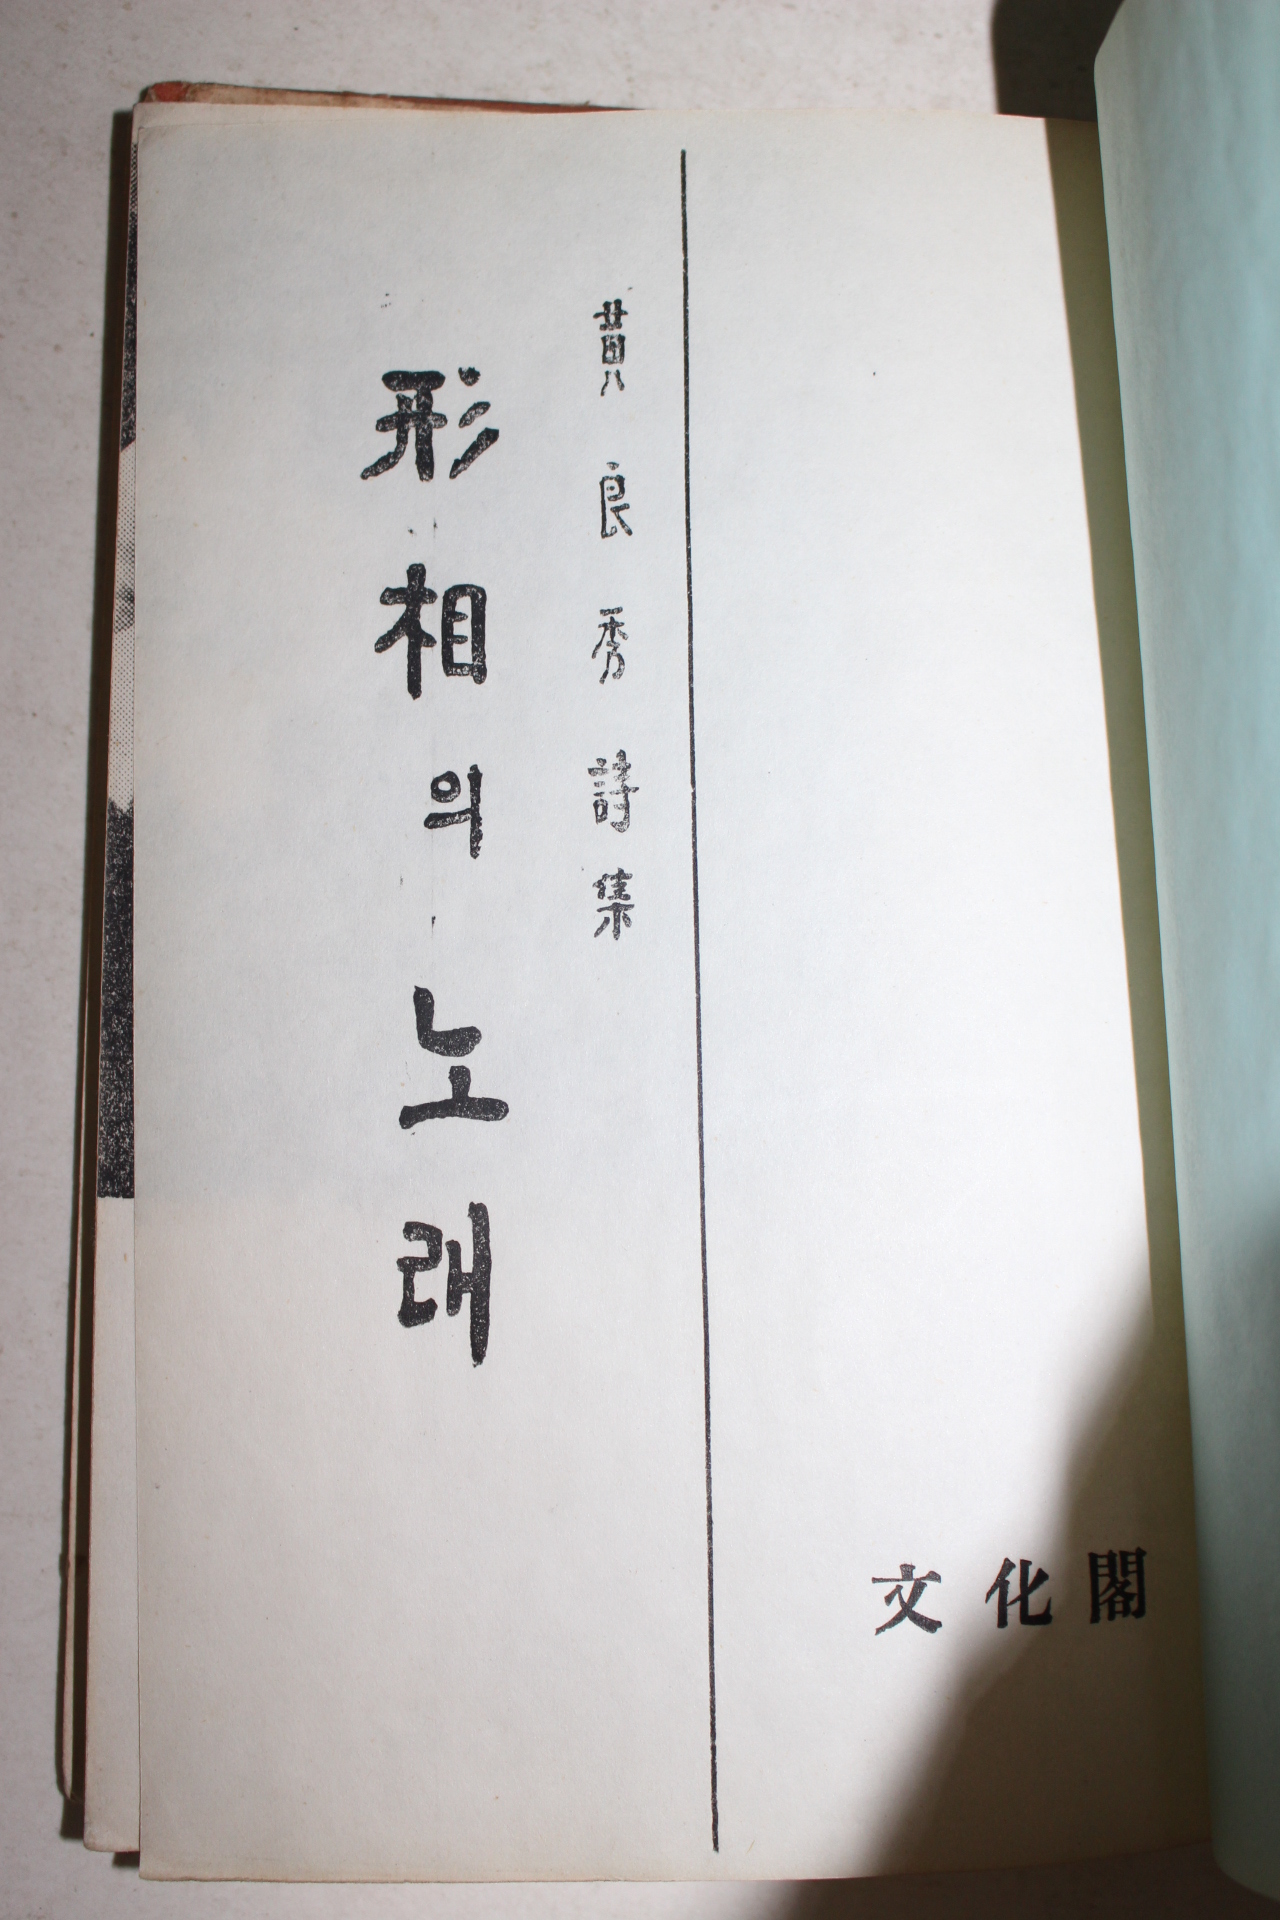 黃良秀詩集
形相의 노래
文化閣